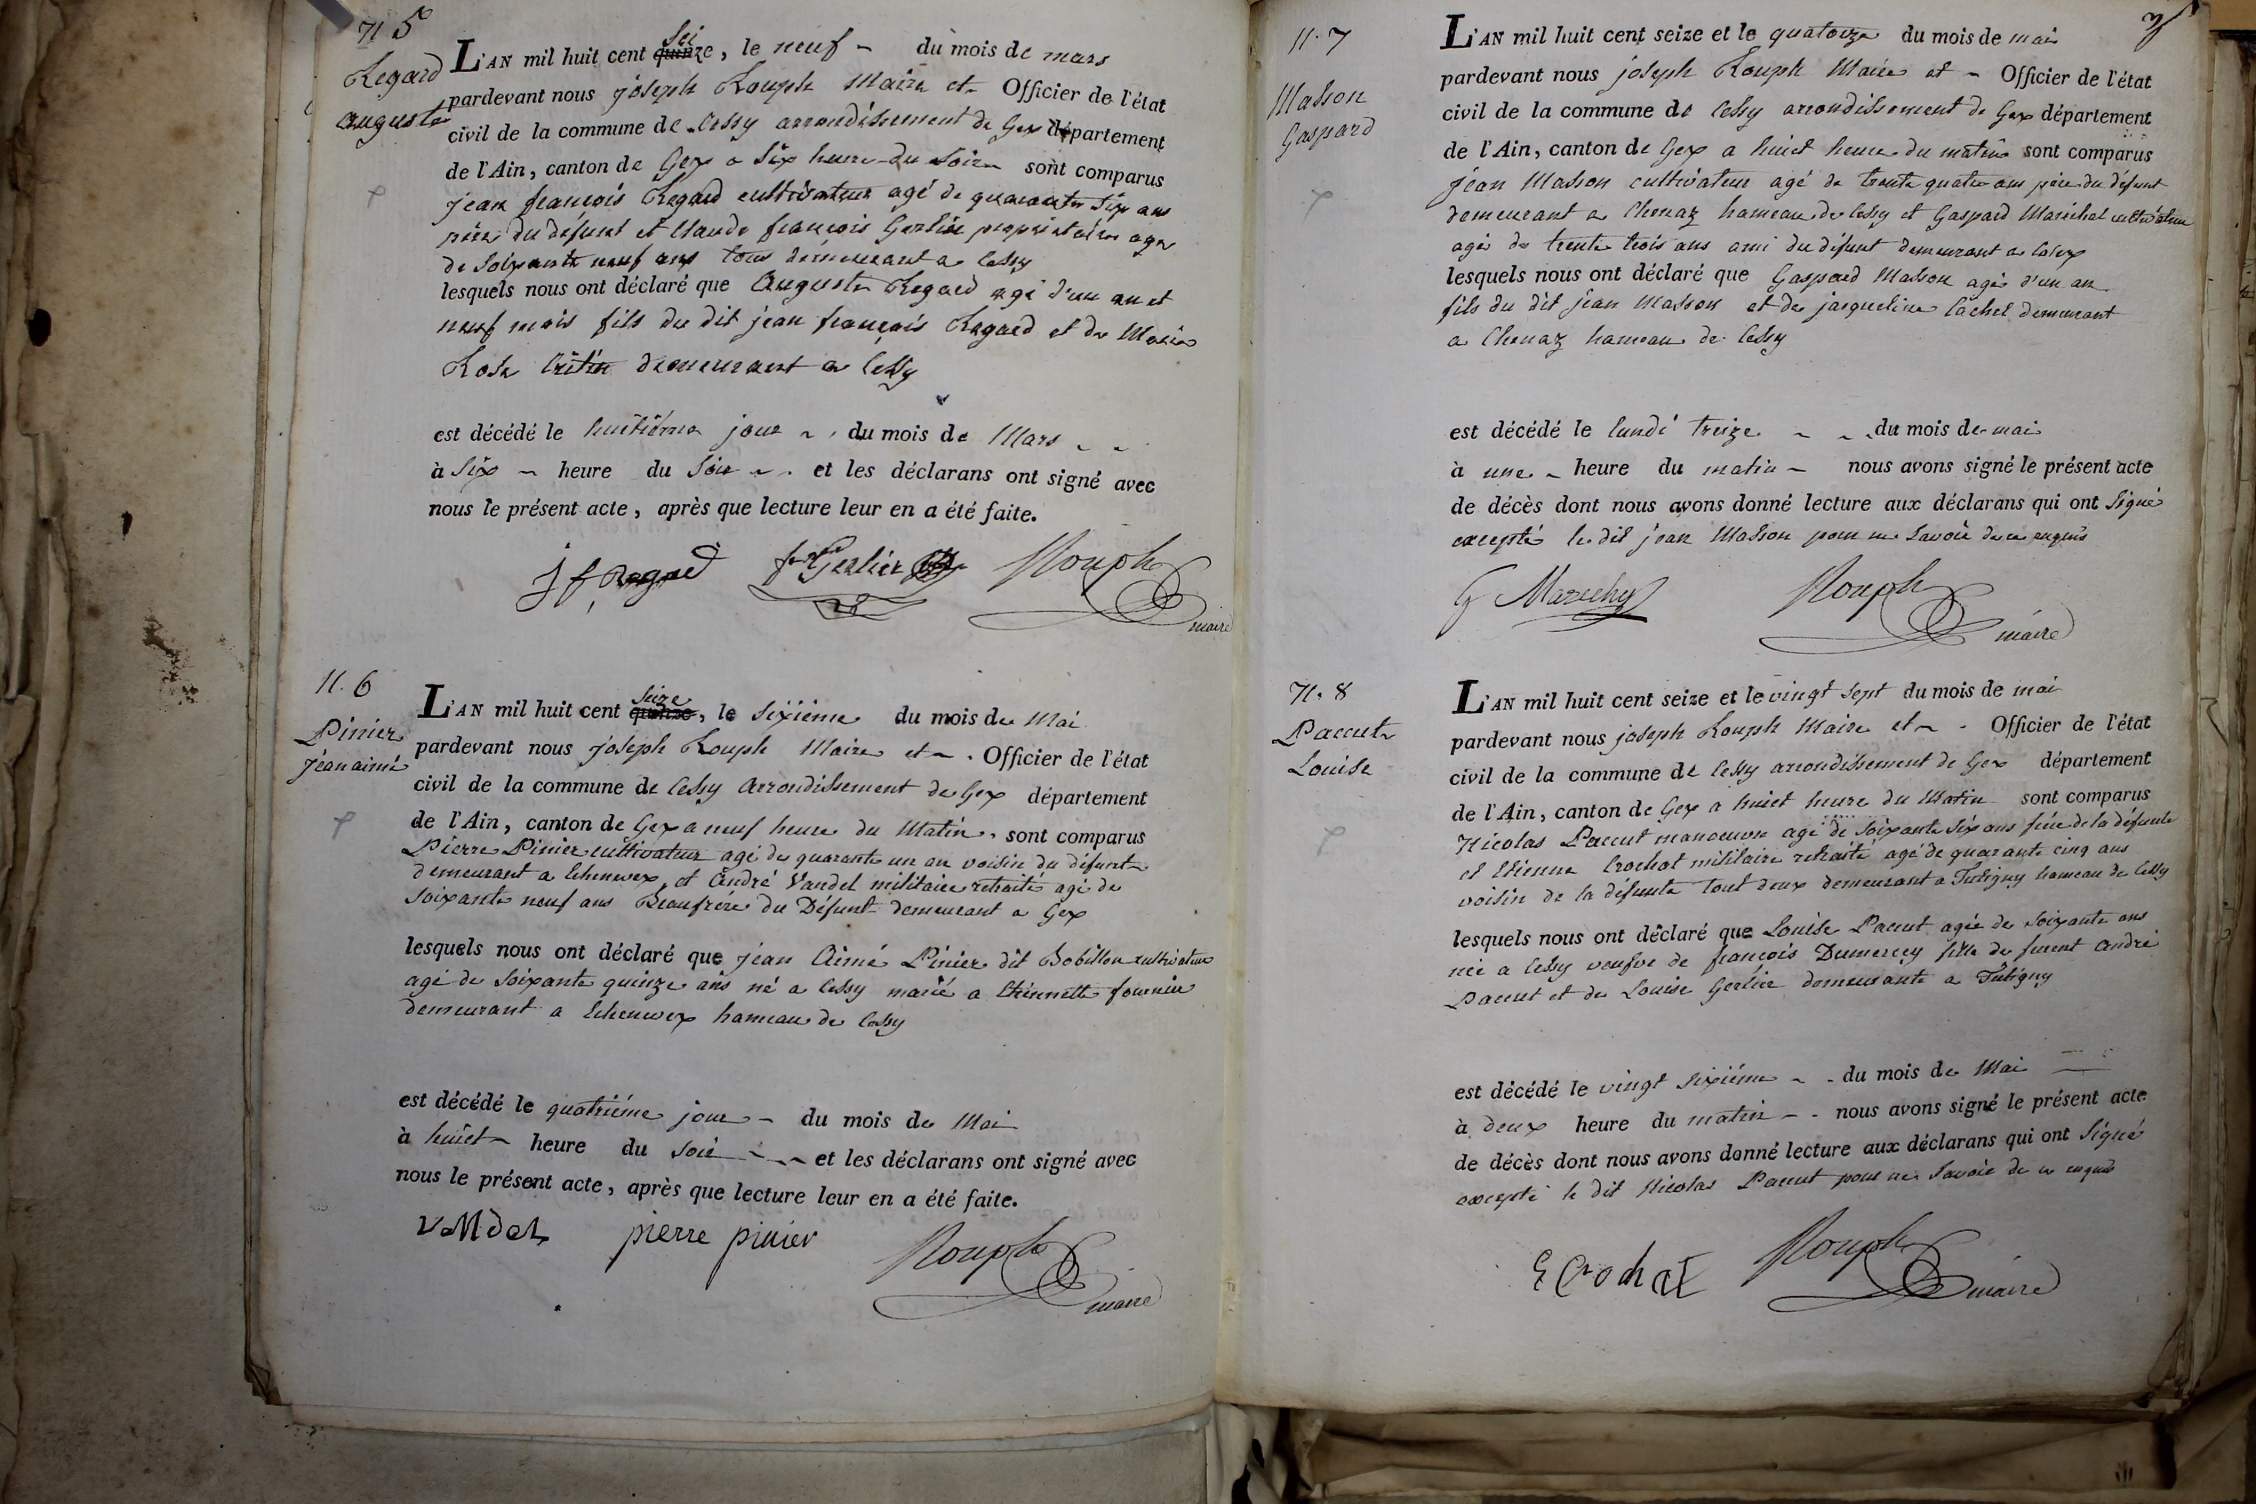 N 5
Regard
Auguste
L'AN mil huit cent quinze Sei, le neuf du mois de mars
pardevant nous joseph Rouph Maire et Officier de l'état
civil de la commune de Cessy arrondissement de Gex département
de l'Ain, canton de Gex a Six heure du Soir sont comparus
jean françois Regard cultivateur agé de quarante Six ans
père du défunt et Claude françois Gerlier propriétaire agé
de Soixante neuf ans tous demeurant a Cessy
lesquels nous ont déclaré que Auguste Regard agé d'un an et
neuf mois fils du dit jean françois Regard et de Marie
Rose demeurant a Cessy
est décédé le huitième jour du mois de Mars
à Six heure du Soir et les déclarans ont signé avec
nous le présent acte, après que lecture leur en a été faite.
j f Regard fs Gerlier Rouph
maire
N. 6
Pinier
jean aimé
L'AN mil huit cent quinze Seize, le Sixième du mois de Mai
pardevant nous joseph Rouph Maire et Officier de l'état
civil de la commune de Cessy Arrondissement de Gex département
de l'Ain, canton de Gex a neuf heure du Matin. sont comparus
Pierre Pinier cultivateur agé de quarante un an voisin du défunt
demeurant a Echenvex et André Vandel militaire retraité agé de
Soixante neuf ans Beaufrère du Défunt demeurant a Gex
lesquels nous ont déclaré que jean Aimé Pinier dit Bobillon cultivateur
agé de Soixante quinze ans né a Cessy marié a Etiennette fournier
demeurant a Echenvex hameau de Cessy
est décédé le quatrième jour du mois de Mai
à huict heure du Soir et les déclarans ont signé avec
nous le présent acte, après que lecture leur en a été faite.
vandel pierre pinier Rouph
maire
N. 7
Masson
Gaspard
L'AN mil huit cent seize et le quatorze du mois de mai
pardevant nous joseph Rouph Maire et Officier de l'état
civil de la commune de Cessy arrondissement de Gex département
de l'Ain, canton de Gex a huict heure du matin sont comparus
jean Masson cultivateur agé de trente quatre ans père du défunt
demeurant a Chenaz hameau de Cessy et Gaspard Maréchal cultivateur
agé de trente trois ans ami du défunt demeurant a
lesquels nous ont déclaré que Gaspard Masson agé d'un an
fils du dit jean Masson et de jacqueline Cachet demeurant
a Chenaz hameau de Cessy
est décédé le lundi treize du mois de mai
à une heure du matin nous avons signé le présent acte
de décès dont nous avons donné lecture aux déclarans qui ont Signé
excepté le dit jean Masson pour ne Savoir de ce requis
G Rouph
maire
N. 8
Paccut
Louise
L'AN mil huit cent seize et le vingt sept du mois de mai
pardevant nous joseph Rouph Maire et Officier de l'état
civil de la commune de Cessy arrondissement de Gex département
de l'Ain, canton de Gex a huict heure du Matin sont comparus
Nicolas Paccut manoeuvre agé de Soixante Six ans frère de la défunte
et Etienne Crochat militaire retraité agé de quarante cinq ans
voisin de la défunte tout deux demeurant a Tutigny hameau de Cessy
lesquels nous ont déclaré que Louise Paccut agée de Soixante ans
née a Cessy veufve de françois Dumercey fille de furent André
Paccut et de Louise Gerlier demeurante a Tutigny
est décédé le vingt sixième du mois de Mai
à deux heure du matin nous avons signé le présent acte
de décès dont nous avons donné lecture aux déclarans qui ont Signé
excepté le dit Nicolas Paccut pour ne Savoir de ce requis
E Crochat Rouph
maire